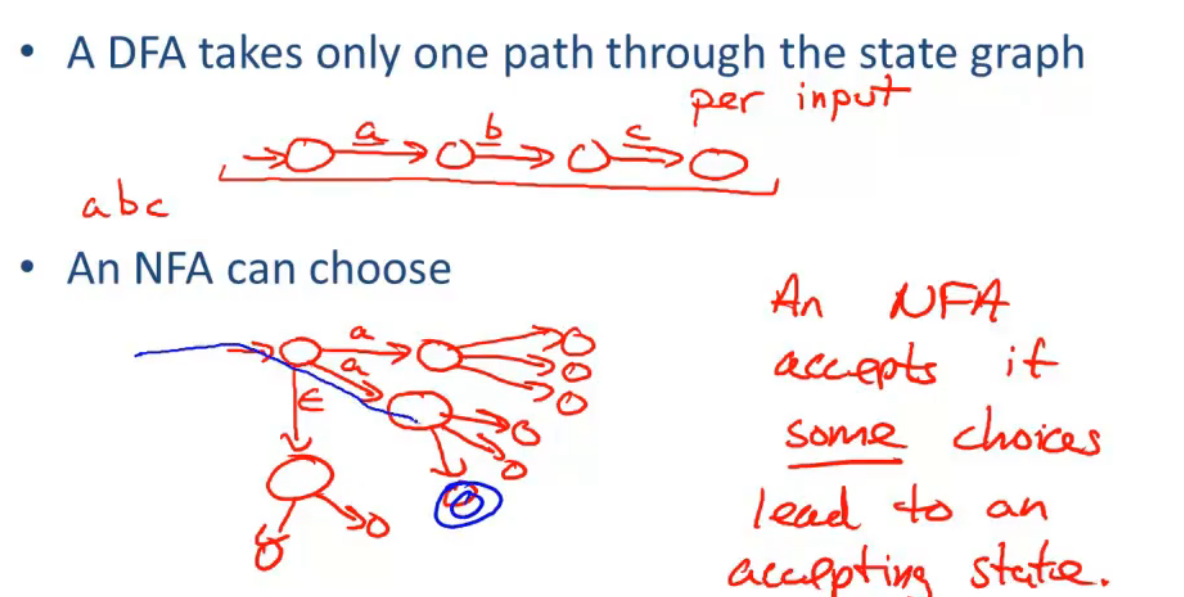 • A DFA takes only one path through the state graph
per input
a b c
abc
• An NFA can choose
An NFA
a
accepts if
a
ϵ
some choices
lead to an
accepting state.